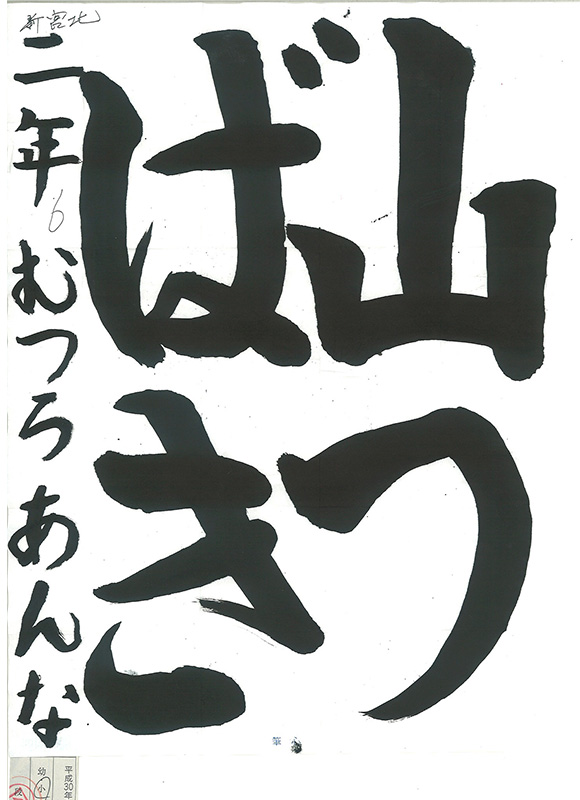 山つ
ばき
新宮北
二年
6
むつらあんな
筆
平成30年
幼 小